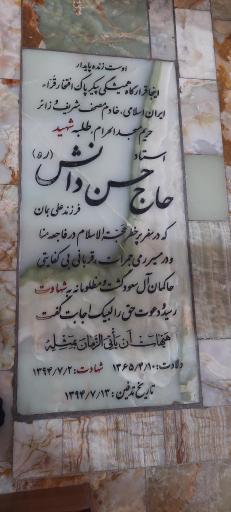 اوست زنده پایدار
اینجا قرارگاه همیشگی پیکر پاک افتخار قرّاء
ایران اسلامی، خادم مصحف شریف و زائر
حریم مسجدالحرام، طلبه شهید
استاد
حاج حسن دانش (ره)
فرزند علی جان
که در سفر پرخطر حجّة الاسلام در فاجعه منا
و در مسیر رمی جمرات، قربانی بی کفایتی
حاکمان آل سعود گشت و مظلومانه به شهادت
رسید و دعوت حق را لبیک اجابت گفت
هیهات ان یأتی الزمان بمثله
ولادت: ۱۳۶۵/۴/۱۰ شهادت: ۱۳۹۴/۷/۲
تاریخ تدفین: ۱۳۹۴/۷/۱۳